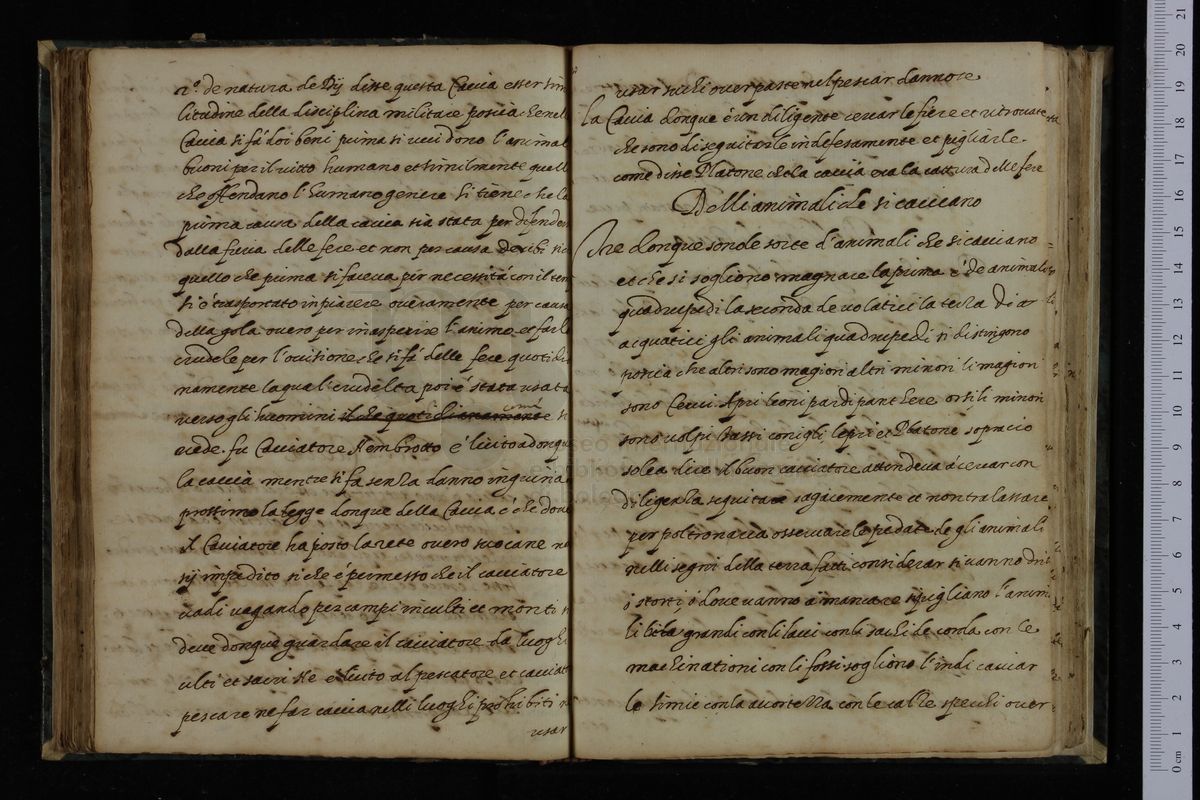 2.º de natura de Dij disse questa Caccia esser sim
litudine della disciplina militare poscia che nel
Caccia si fà doi beni prima si uccidono l'animal
buoni per il uitto humano et similmente quell
che offendano l'humano genere si tiene che la
prima causa della caccia sia stata per difender
dalla furia delle fere et non per causa de cibi si
quello che prima si faceua per necessità con il tem
si è trasportato in piacere oueramente per causa
della gola ouero per inasperire l'animo et farlo
crudele per l'occisione che si fà delle fere quotidi
namente la qual crudelta poi è stata usata
uerso gli huomini il che quotidianamente come si
uede. fu Cacciatore Nembrotto è licito adonqu
la caccia mentre si fa senza danno ingiuria
prossimo la legge donque della Caccia è che doue
il Cacciatore ha posto la rete ouero suo cane no
sij impedito si che è permesso che il cacciatore
uadi uagando per campi inculti et monti
deue donque guardare il cacciatore da luoghi
culti et sacri ne è licito al pescatore et cacciat
pescare ne far caccia nelli luoghi prohibiti
usar
usar suchi ouer paste nel pescar dannose
la Caccia donque è un diligente cercar le fiere et ritrouate
che sono di seguitarle indefesamente et pigliarle.
come disse Platone che la caccia era la cattura delle fere
Delli animali che si cacciano
Tre donque sono le sorte d'animali che si cacciano
et che si sogliono magnare la prima è de animali
quadrupedi la seconda de uolatici la terza di
acquatici gli animali quadrupedi si distingono
poscia che altri sono magiori altri minori li magiori
sono Cerui Apri leoni pardi panthere orsi, li minori
sono uolpi tassi conigli lepri et Platone sopra cio
solea dire il buon cacciatore attendeua à cercar con
diligenza seguitare sagacemente et non tralassare
per poltronaria osseruare le pedate de gli animali
nelli segni della terra fatti considerar si uanno driti
ò storti, ò doue uanno à mancare si pigliano l'anim
li grandi con li lacci con li sachi de corda con le
machinationi con li fossi sogliono l'indi cacciar
le simie con la accortezza con le calze specchi ouer